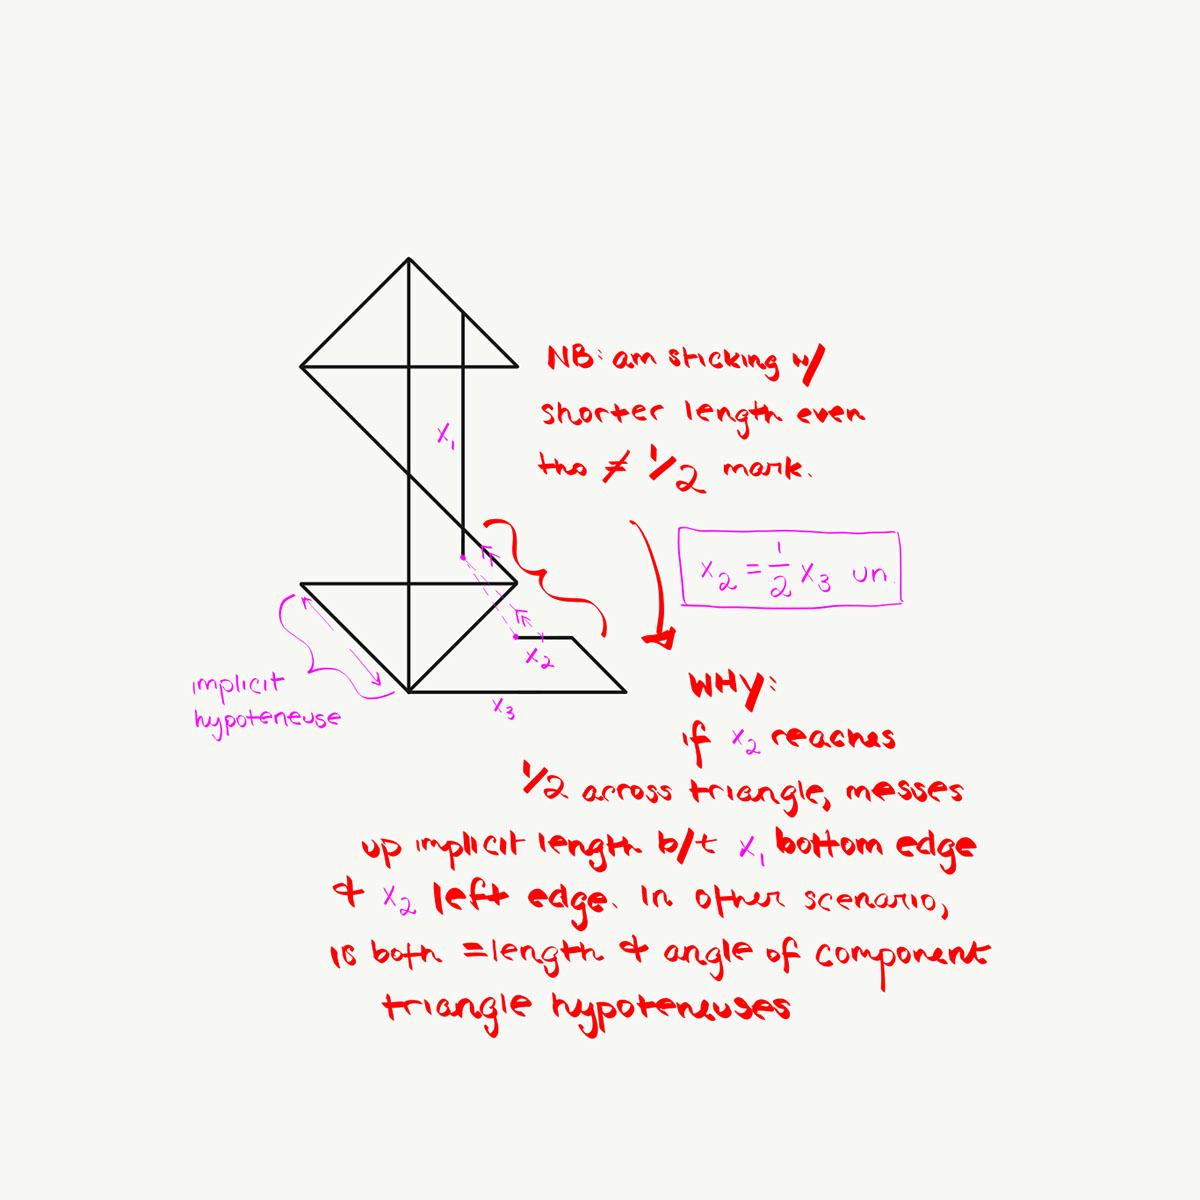 NB: am sticking w/
shorter length even
tho ≠ 1/2 mark.
x₁
x₂ = 1/2 x₃ un.
x₂
implicit
hypoteneuse
x₃
WHY:
if x₂ reaches
1/2 across triangle, messes
up implicit length b/t x₁ bottom edge
& x₂ left edge. In other scenario,
is both = length & angle of component
triangle hypoteneuses